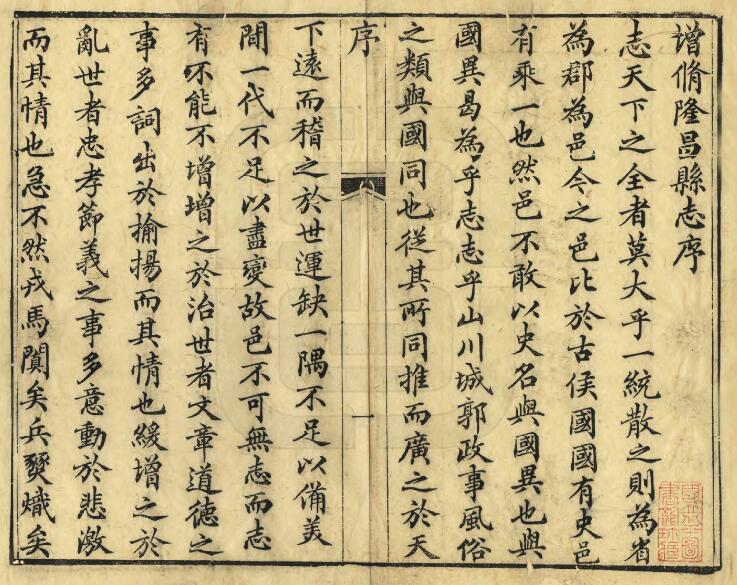 增脩隆昌縣志序
志天下之全者莫大乎一統散之則為省
為郡為邑今之邑比於古侯國國有史邑
有乘一也然邑不敢以史名與國異也與
國異曷為乎志志乎山川城郭政事風俗
之類與國同也從其所同推而廣之於天
序
一
下遠而稽之於世運缺一隅不足以備美
間一代不足以盡變故邑不可無志而志
有不能不增增之於治世者文章道德之
事多詞出於揄揚而其情也緩增之於
亂世者忠孝節義之事多意動於悲激
而其情也急不然戎馬闐矣兵燹熾矣